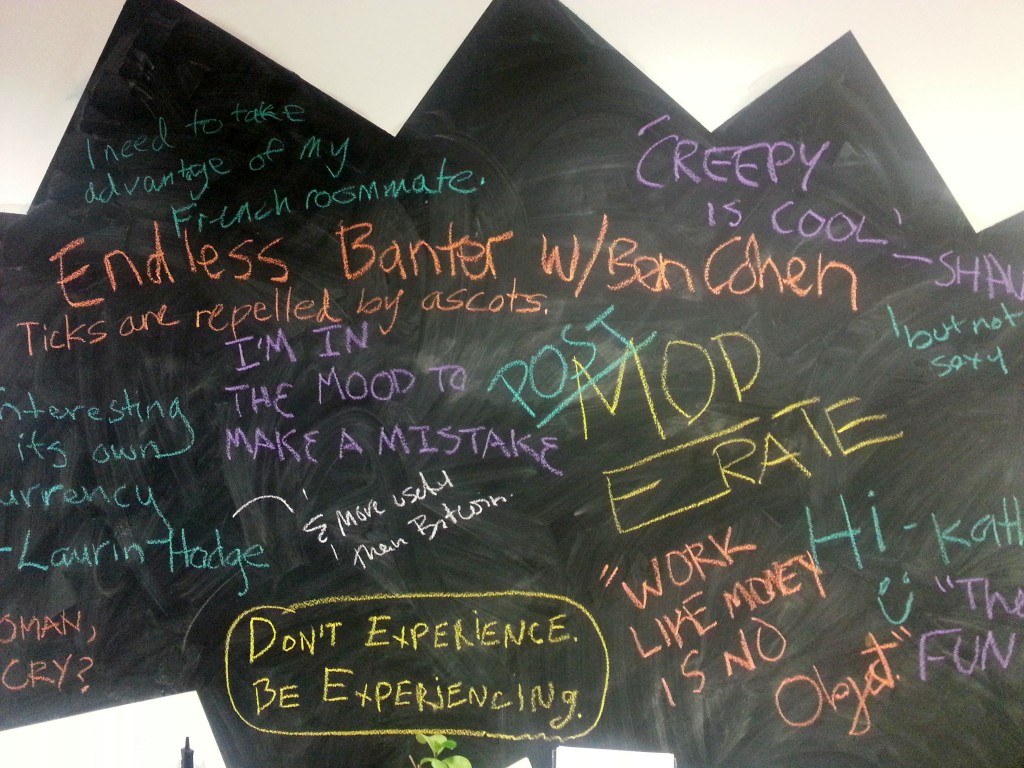 I need to take
advantage of my
French roommate.
"CREEPY
IS COOL"
-SHAU
but not
sexy
Endless Banter w/Ben Cohen
Ticks are repelled by ascots.
I'M IN
THE MOOD TO
MAKE A MISTAKE
POST
MOD
ERATE
nteresting
its own
urrency
-Laurin Hodge
& More useful
than Bitcoin.
Hi - Kath
"WORK
LIKE MONEY
IS NO
Object."
"The
FUN
OMAN,
CRY?
DON'T EXPERIENCE.
BE EXPERIENCING.